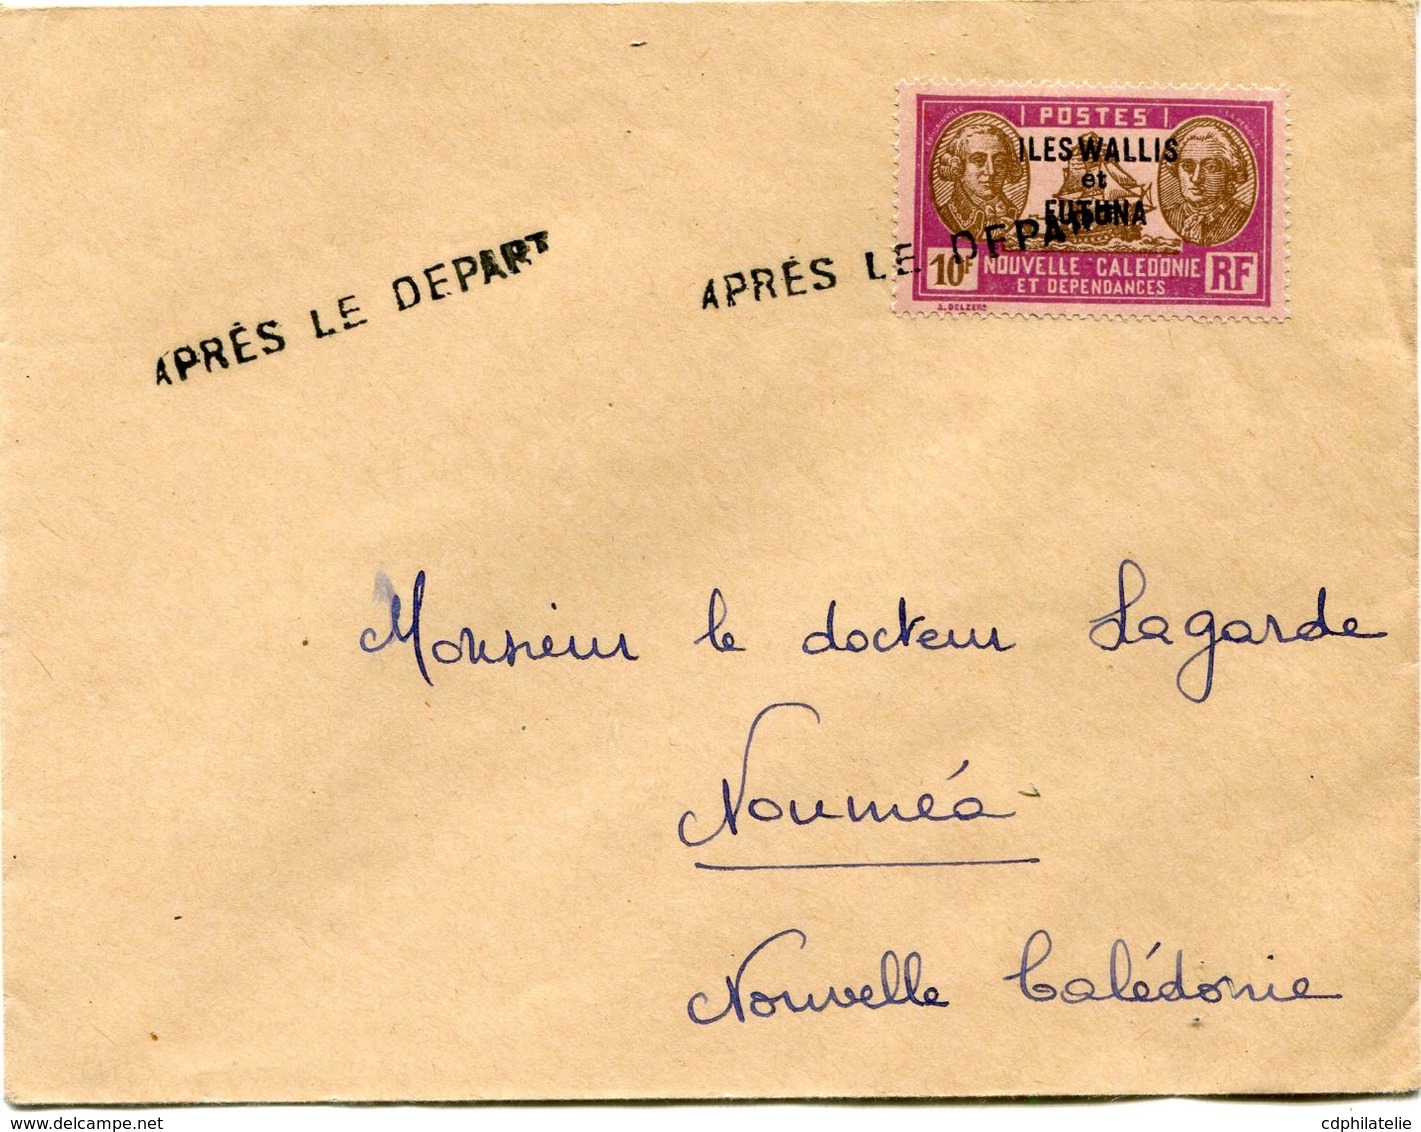 POSTES
BOUGAINVILLE
LA PEROUSE
ILES WALLIS
et
FUTUNA
10F NOUVELLE CALEDONIE RF
ET DEPENDANCES
A. DELZERS
APRÈS LE DEPART
APRÈS LE DEPART
Monsieur le docteur Lagarde
Nouméa
Nouvelle Calédonie
www.delcampe.net
cdphilatelie